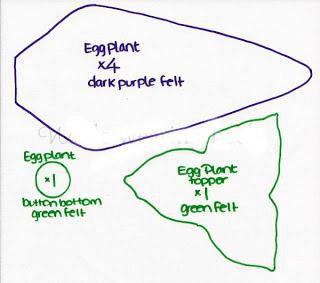 Eggplant
x4
dark purple felt
Eggplant
x1
button bottom
green felt
Egg Plant
topper
x1
green felt